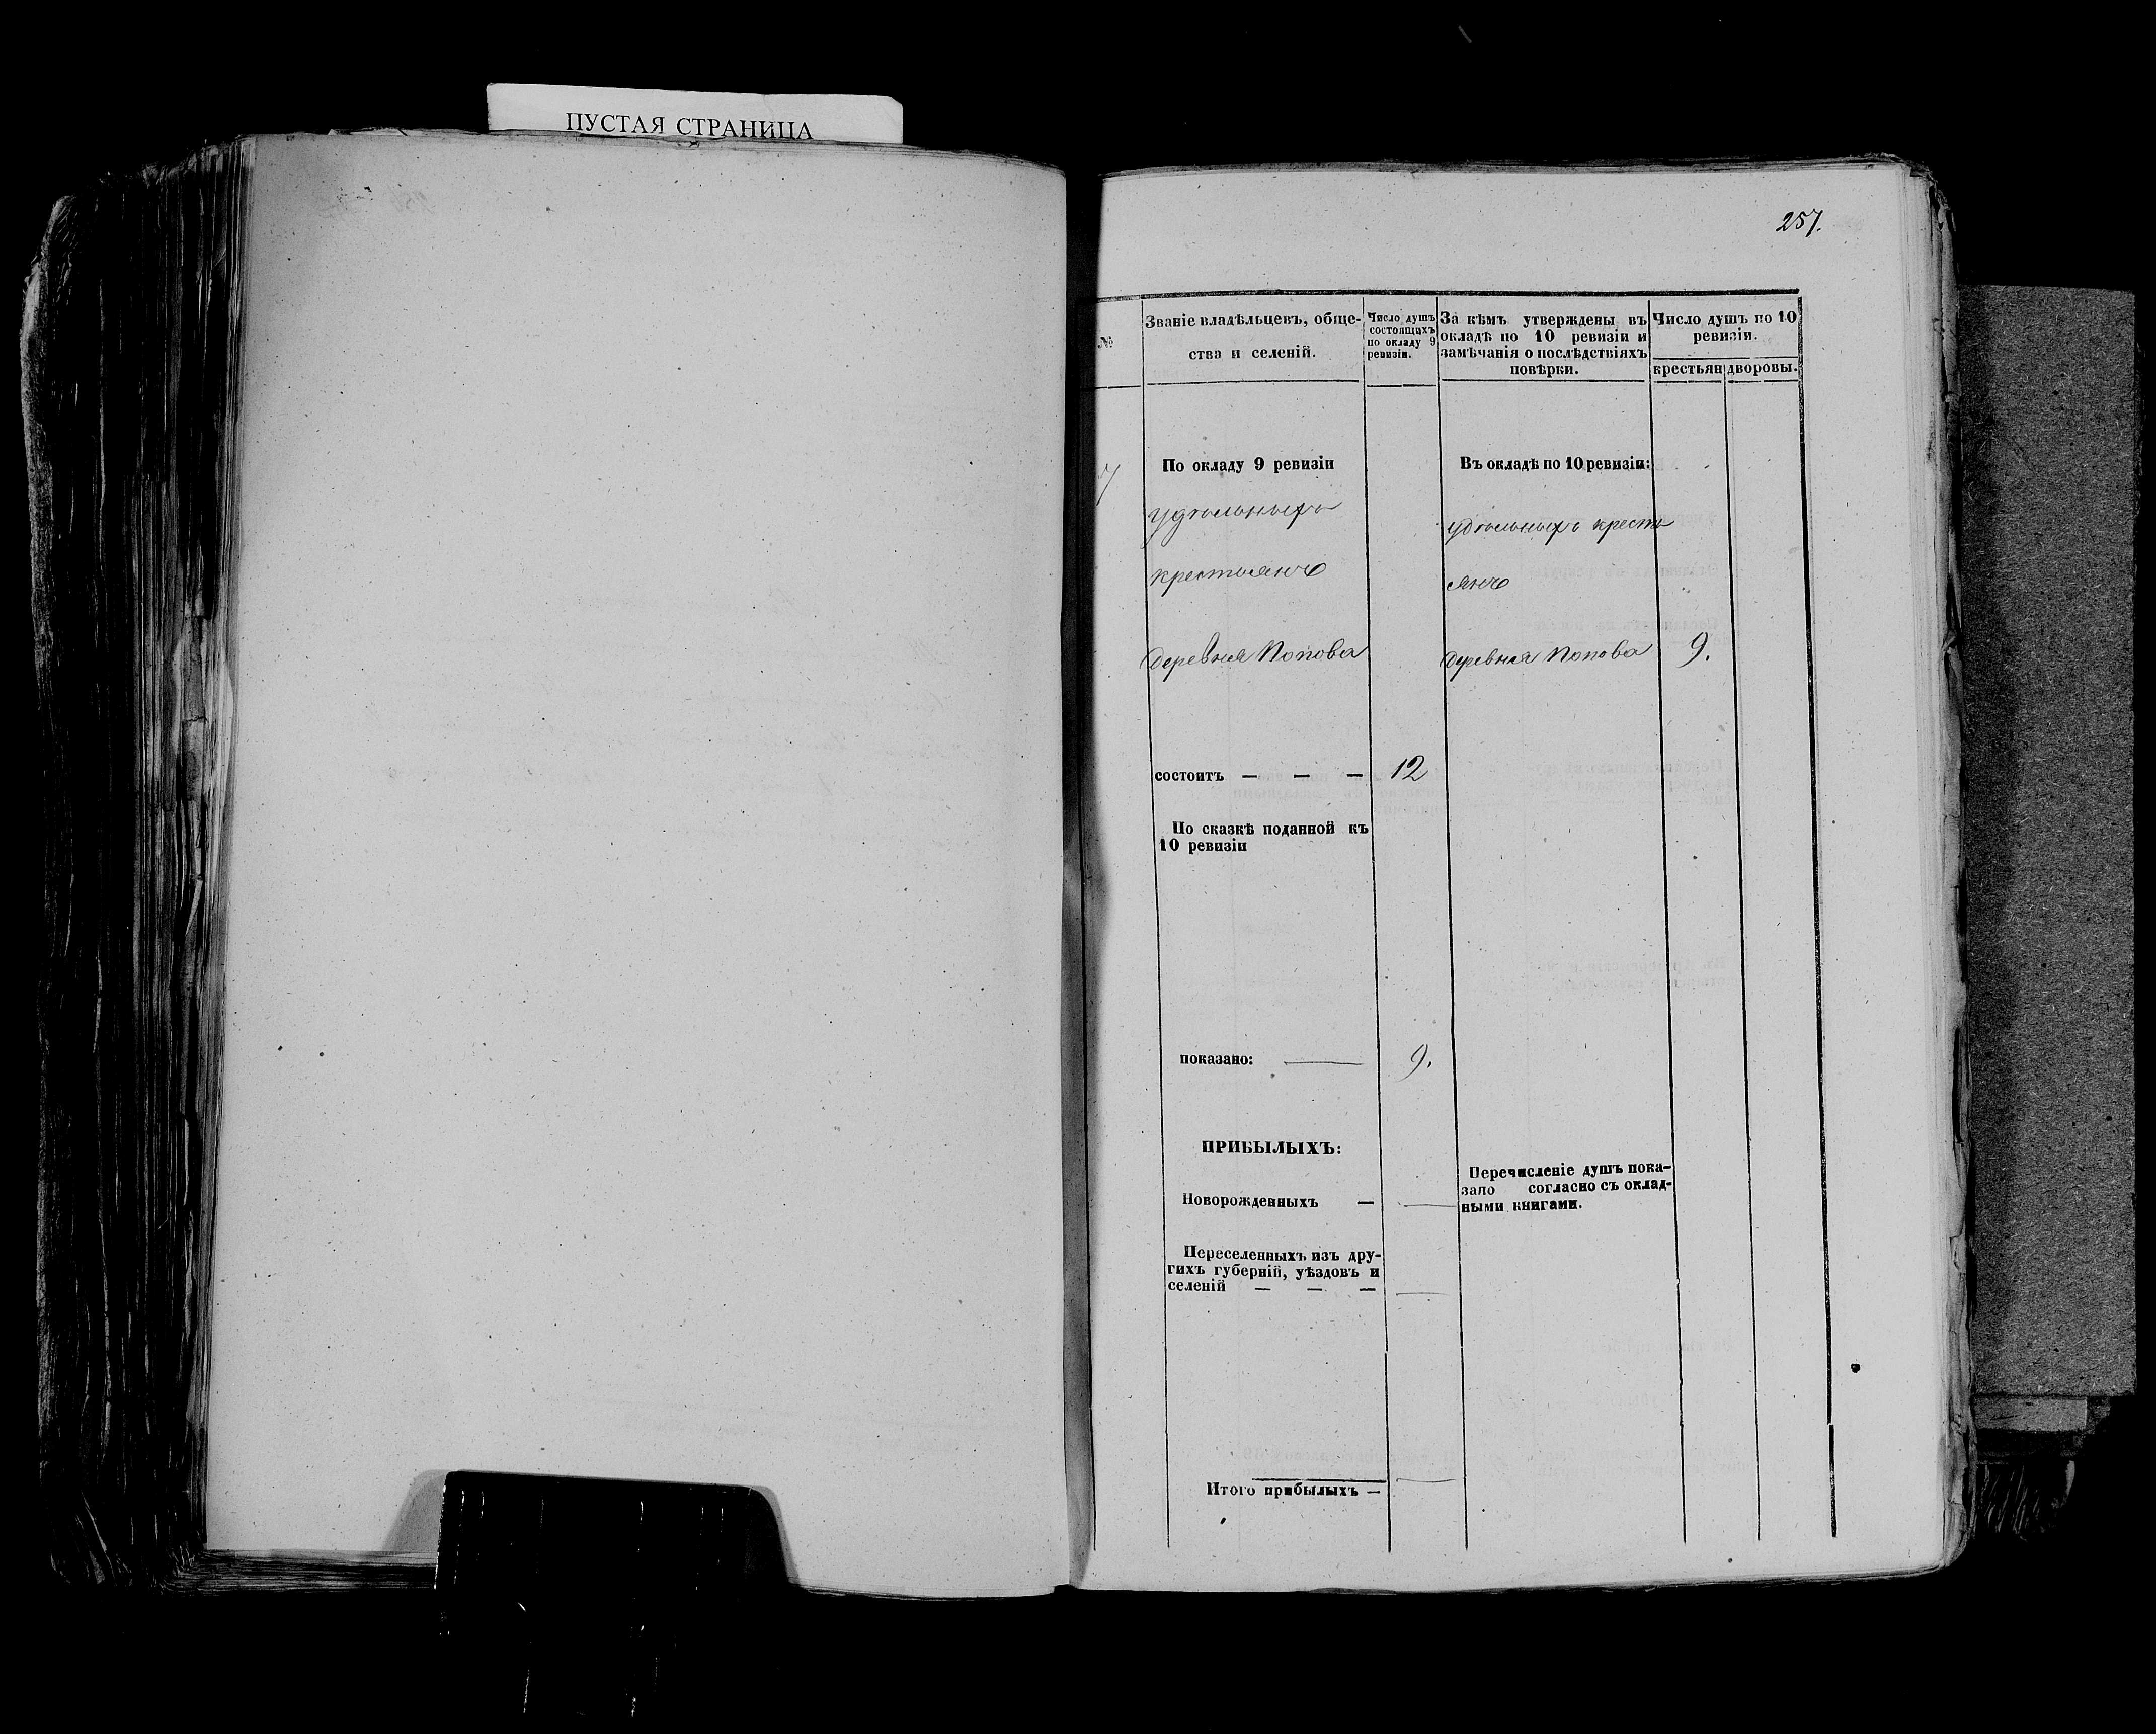 ПУСТАЯ СТРАНИЦА
257.
№
Званіе владѣльцевъ, обще-
ства и селеній.
Число душъ
состоящихъ
по окладу 9
ревизіи.
За кѣмъ утверждены въ
окладѣ по 10 ревизіи и
замѣчанія о послѣдствіяхъ
повѣрки.
Число душъ по 10
ревизіи.
крестьян
дворовы.
7
По окладу 9 ревизіи
удѣльныхъ
крестьянъ
деревня Попова
состоитъ — — —
12
По сказкѣ поданной къ
10 ревизіи
показано:
9.
ПРИБЫЛЫХЪ:
Новорожденныхъ —
Переселенныхъ изъ дру-
гихъ губерній, уѣздовъ и
селеній — — —
Итого прибылыхъ —
Въ окладѣ по 10 ревизіи:
удѣльныхъ кресть
янъ
деревня Попова
9.
Перечисленіе душъ пока-
зано согласно съ оклад-
ными книгами.